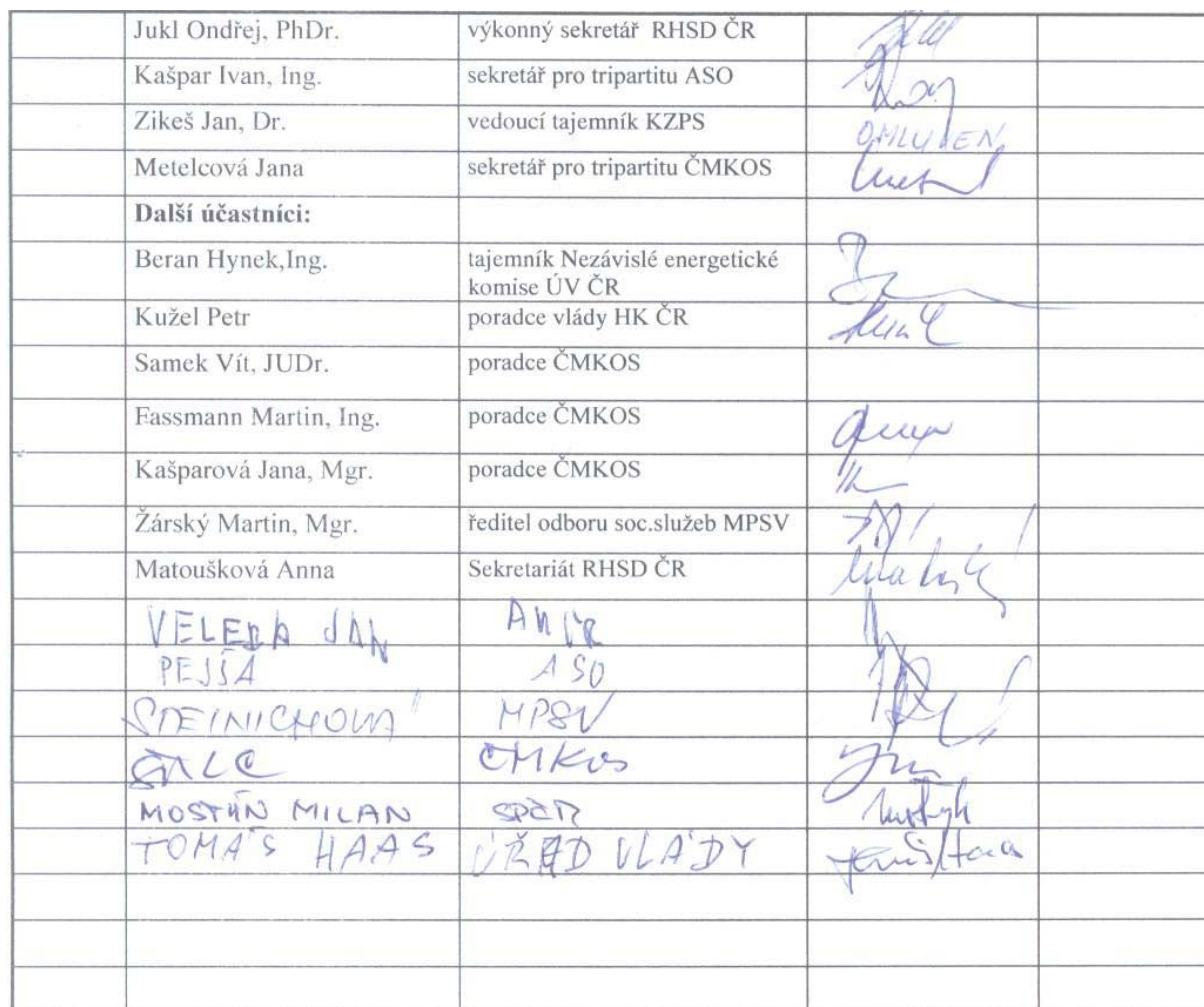 Jukl Ondřej, PhDr. výkonný sekretář RHSD ČR
Kašpar Ivan, Ing. sekretář pro tripartitu ASO
Zikeš Jan, Dr. vedoucí tajemník KZPS OMLUVEN
Metelcová Jana sekretář pro tripartitu ČMKOS
Další účastníci:
Beran Hynek,Ing. tajemník Nezávislé energetické
komise ÚV ČR
Kužel Petr poradce vlády HK ČR
Samek Vít, JUDr. poradce ČMKOS
Fassmann Martin, Ing. poradce ČMKOS
Kašparová Jana, Mgr. poradce ČMKOS
Žárský Martin, Mgr. ředitel odboru soc.služeb MPSV
Matoušková Anna Sekretariát RHSD ČR
VELEBA JAN
PEJŠA ASO
MPSV
ČMKOS
MOSTÝN MILAN SPČR
TOMÁŠ HAAS ÚŘAD VLÁDY